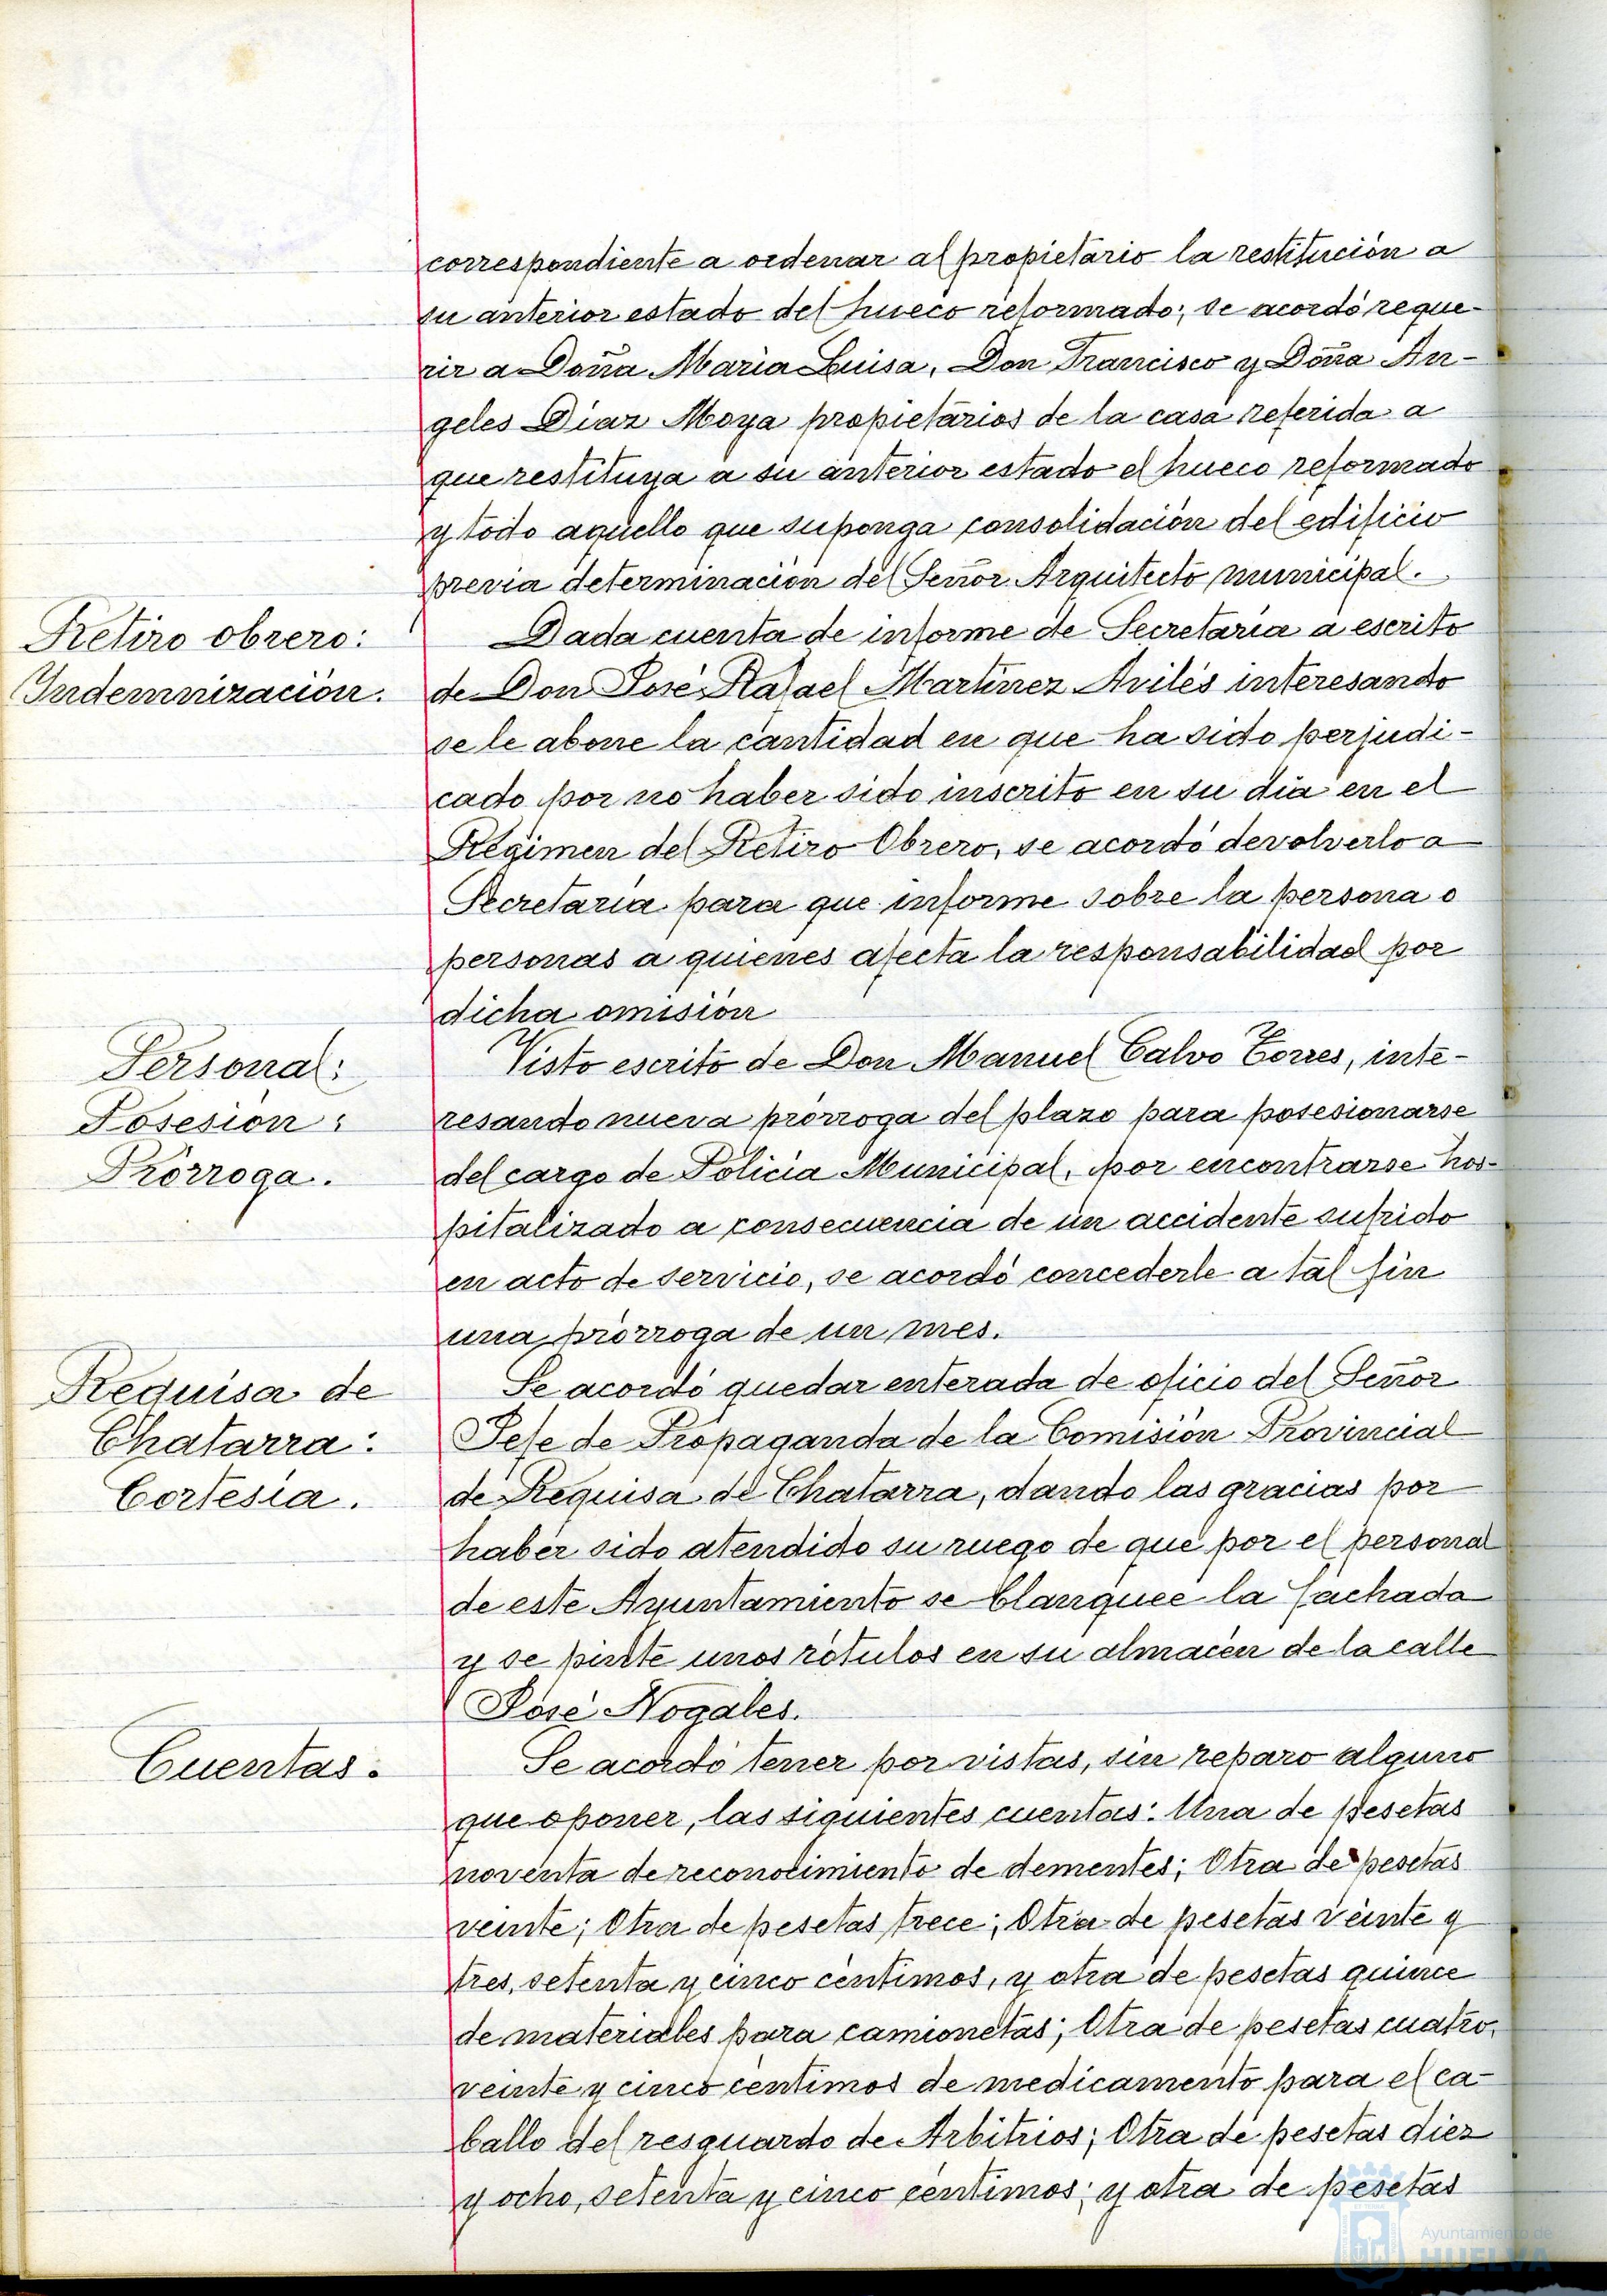 correspondiente a ordenar al propietario la restitución a
su anterior estado del hueco reformado; se acordó reque-
rir a Doña María Luisa, Don Francisco y Doña An-
geles Díaz Moya propietarios de la casa referida a
que restituya a su anterior estado el hueco reformado
y todo aquello que suponga consolidación del edificio
previa determinación del Señor Arquitecto municipal.
Retiro obrero:
Indemnización.
Dada cuenta de informe de Secretaría a escrito
de Don José Rafael Martínez Avilés interesando
se le abone la cantidad en que ha sido perjudi-
cado por no haber sido inscrito en su día en el
Régimen del Retiro Obrero, se acordó devolverlo a
Secretaría para que informe sobre la persona o
personas a quienes afecta la responsabilidad por
dicha omisión
Personal:
Posesión:
Prórroga.
Visto escrito de Don Manuel Calvo Torres, inte-
resando nueva prórroga del plazo para posesionarse
del cargo de Policía Municipal, por encontrarse hos-
pitalizado a consecuencia de un accidente sufrido
en acto de servicio, se acordó concederle a tal fin
una prórroga de un mes.
Requisa de
Chatarra:
Cortesía.
Se acordó quedar enterada de oficio del Señor
Jefe de Propaganda de la Comisión Provincial
de Requisa de Chatarra, dando las gracias por
haber sido atendido su ruego de que por el personal
de este Ayuntamiento se blanquee la fachada
y se pinte unos rótulos en su almacén de la calle
José Nogales.
Cuentas.
Se acordó tener por vistas, sin reparo alguno
que oponer, las siguientes cuentas: Una de pesetas
noventa de reconocimiento de dementes; Otra de pesetas
veinte; Otra de pesetas trece; Otra de pesetas veinte y
tres, setenta y cinco céntimos, y otra de pesetas quince
de materiales para camionetas; Otra de pesetas cuatro,
veinte y cinco céntimos de medicamento para el ca-
ballo del resguardo de Arbitrios; Otra de pesetas diez
y ocho, setenta y cinco céntimos; y otra de pesetas
Ayuntamiento de
HUELVA